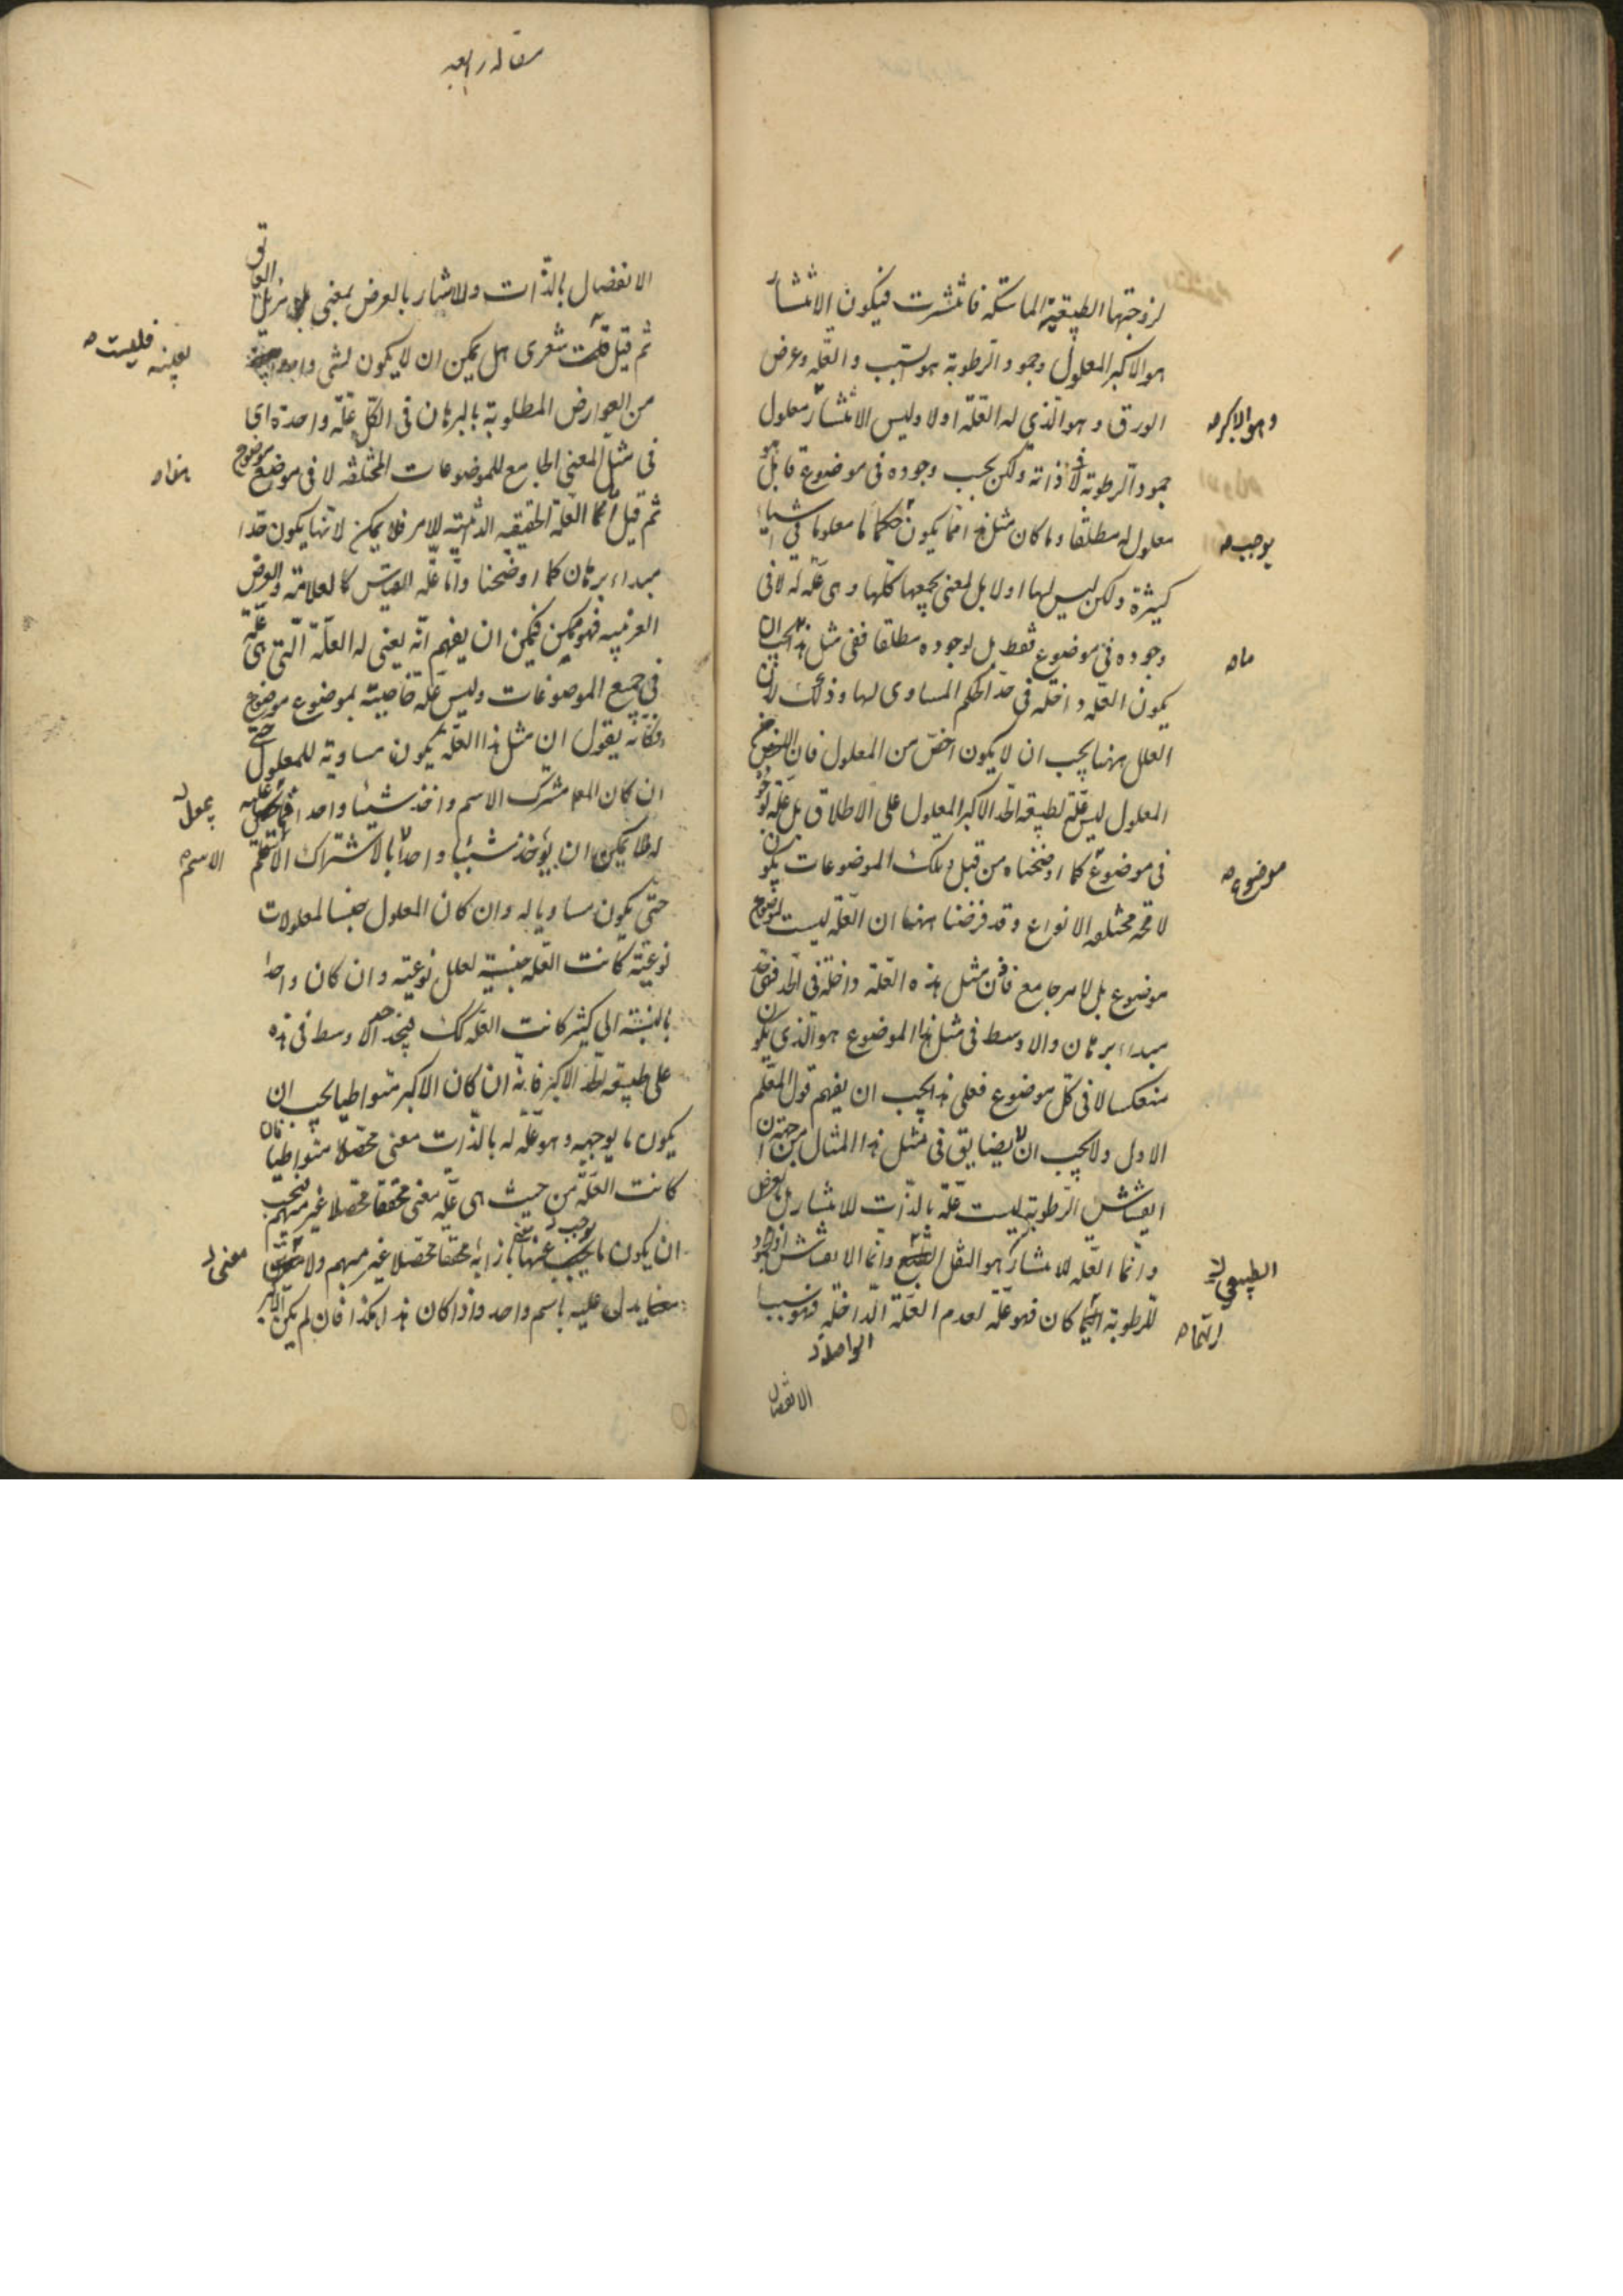 لزوجتها الطبيعية الماسكة فانتثرت فيكون الانتثار
هو الاكبر المعلول وجمود الرطوبة هو السبب والعلة وعرض
الورق وهو الذي له العلة اولا وليس الانتثار معلول
جمود الرطوبة لا في ذاته ولكن يجب وجوده في موضوع قابل هو
معلول له مطلقا وما كان مثل هذا انما يكون حكما ما معلوما في اشياء
كثيرة ولكن ليس لها اولا بل لمعنى يجمعها كلها وهي علة له لا في
وجوده في موضوع فقط بل لوجوده مطلقا ففي مثل هذا يجب ان
يكون العلة داخلة في حد الحكم المساوي لها وذلك لان
العلل ههنا يجب ان لا يكون اخص من المعلول فان الاخص من
المعلول ليس علة لطبيعة الحد الاكبر المعلول على الاطلاق بل علة لوجوده
في موضوع كما اوضحناه من قبل وتلك الموضوعات يكون
لا محة مختلفة الانواع وقد فرضنا ههنا ان العلة ليست لموضوع
موضوع بل لامر جامع فاذن مثل هذه العلة داخلة في الحد فهي حد
مبداء برهان والاوسط في مثل هذا الموضوع هو الذي يكون
منعكسا لا في كل موضوع فعلى هذا يجب ان يفهم قول المعلم
الاول ولا يجب ان لا يضايق في مثل هذا المثال من جهة ان
انفشاش الرطوبة ليست علة بالذات للانتثار بل بالعرض
وانما العلة للانتثار هو الثقل الطبيعي وانما الانفشاش او الجمود
للرطوبة ايهما كان فهو علة لعدم العلة الداخلة فهو سبب
الواصلة
الانفصال
وهو الاكبر
يوجب
ماه
موضوع
الطبيعي
مقاله رابعه
الانفصال بالذات وللانتثار بالعرض بمعنى مزيل العائق
ثم قيل ليت شعري هل يمكن ان لا يكون لشئ واحد
من العوارض المطلوبة بالبرهان في الكل علة واحدة اي
في مثل المعنى الجامع للموضوعات المختلفة لا في موضوع موضوع
ثم قيل اما العلة الحقيقية الذاتية للامر فلا يمكن لانها يكون حدا
مبداء برهان كما اوضحنا واما علة القياس كالعلامة والعرض
الغريبة فهو ممكن فيمكن ان يفهم انه يعني له العلة التي هي علة
في جميع الموضوعات وليس علة خاصية بموضوع موضوع
فكانه يقول ان مثل هذا العلة يكون مساوية للمعلول حتى
ان كان المعلم مشترك الاسم واخذ شيئا واحدا
له فلا يمكن ان يؤخذ شيئا واحدا بالاشتراك الاسم
حتى يكون مساويا له وان كان المعلول جنسا لمعلولات
نوعية كانت العلة جنسية لعلل نوعية وان كان واحدا
بالنسبة الى كثير كانت العلة كك فيجد حد الاوسط في هذه
على طبيعة حد الاكبر فانه ان كان الاكبر متواطيا يجب ان
يكون ما يوجبه وهو علة له بالذات معنى محصلا متواطيا فان
كانت العلة من حيث هي علة معنى محققا محصلا غير مبهم فيجب
ان يكون ما يجب عنها بازائه محققا محصلا غير مبهم ولا
يدل عليه باسم واحد واذا كان هذا هكذا فان لم يكن الاكبر
فليست
الاسم
معنى